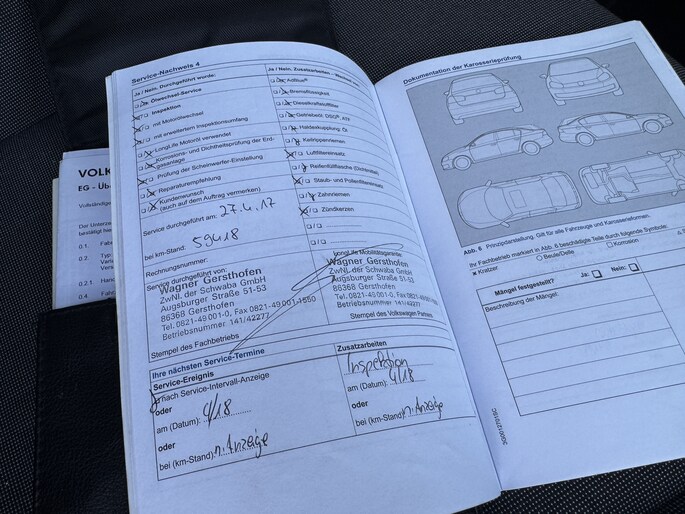 Service-Nachweis 4
Ja / Nein. Durchgeführt wurde:
Ölwechsel-Service
Inspektion
mit Motorölwechsel
mit erweitertem Inspektionsumfang
LongLife Motoröl verwendet
Korrosions- und Dichtheitsprüfung der Erd-
gasanlage
Prüfung der Scheinwerfer-Einstellung
Reparaturempfehlung
Kundenwunsch
(auch auf dem Auftrag vermerken)
Service durchgeführt am: 27.4.17
bei km-Stand: 59418
Rechnungsnummer:
Service durchgeführt von:
Wagner Gersthofen
ZwNl. der Schwaba GmbH
Augsburger Straße 51-53
86368 Gersthofen
Tel. 0821-49 001-0, Fax 0821-49 001-1550
Betriebsnummer 141/42277
Stempel des Fachbetriebs
Ja / Nein. Zusatzarbeiten
AdBlue®
Bremsflüssigkeit
Dieselkraftstofffilter
Getriebeöl, DSG®,
Haldexkupplung, Öl
Keilrippenriemen
Luftfiltereinsatz
Reifenfüllflasche (Dichtmittel)
Staub- und Pollenfiltereinsatz
Zahnriemen
Zündkerzen
LongLife Mobilitätsgarantie
Wagner Gersthofen
ZwNl. der Schwaba GmbH
Augsburger Straße 51-53
86368 Gersthofen
Tel. 0821-49 001-0, Fax 0821-49
Betriebsnummer 141/42277
Stempel des Volkswagen Partners
Ihre nächsten Service-Termine
Service-Ereignis
nach Service-Intervall-Anzeige
oder
am (Datum): 4/18
oder
bei (km-Stand): n. Anzeige
Zusatzarbeiten
Inspektion
am (Datum): 4/18
bei (km-Stand): n. Anzeige
Dokumentation der Karosserieprüfung
Abb. 6 Prinzipdarstellung. Gilt für alle Fahrzeuge und Karosserieformen.
Ihr Fachbetrieb markiert in Abb. 6 beschädigte Teile durch folgende Symbole:
Kratzer
Beule/Delle
Korrosion
Mängel festgestellt? Ja: Nein:
Beschreibung der Mängel:
VOLK
EG - Üb
Vollständige
Der Unterze
bestätigt hier
0.1. Fabr
0.2 Typ
0.2.1. Hand
0.4 Fahr